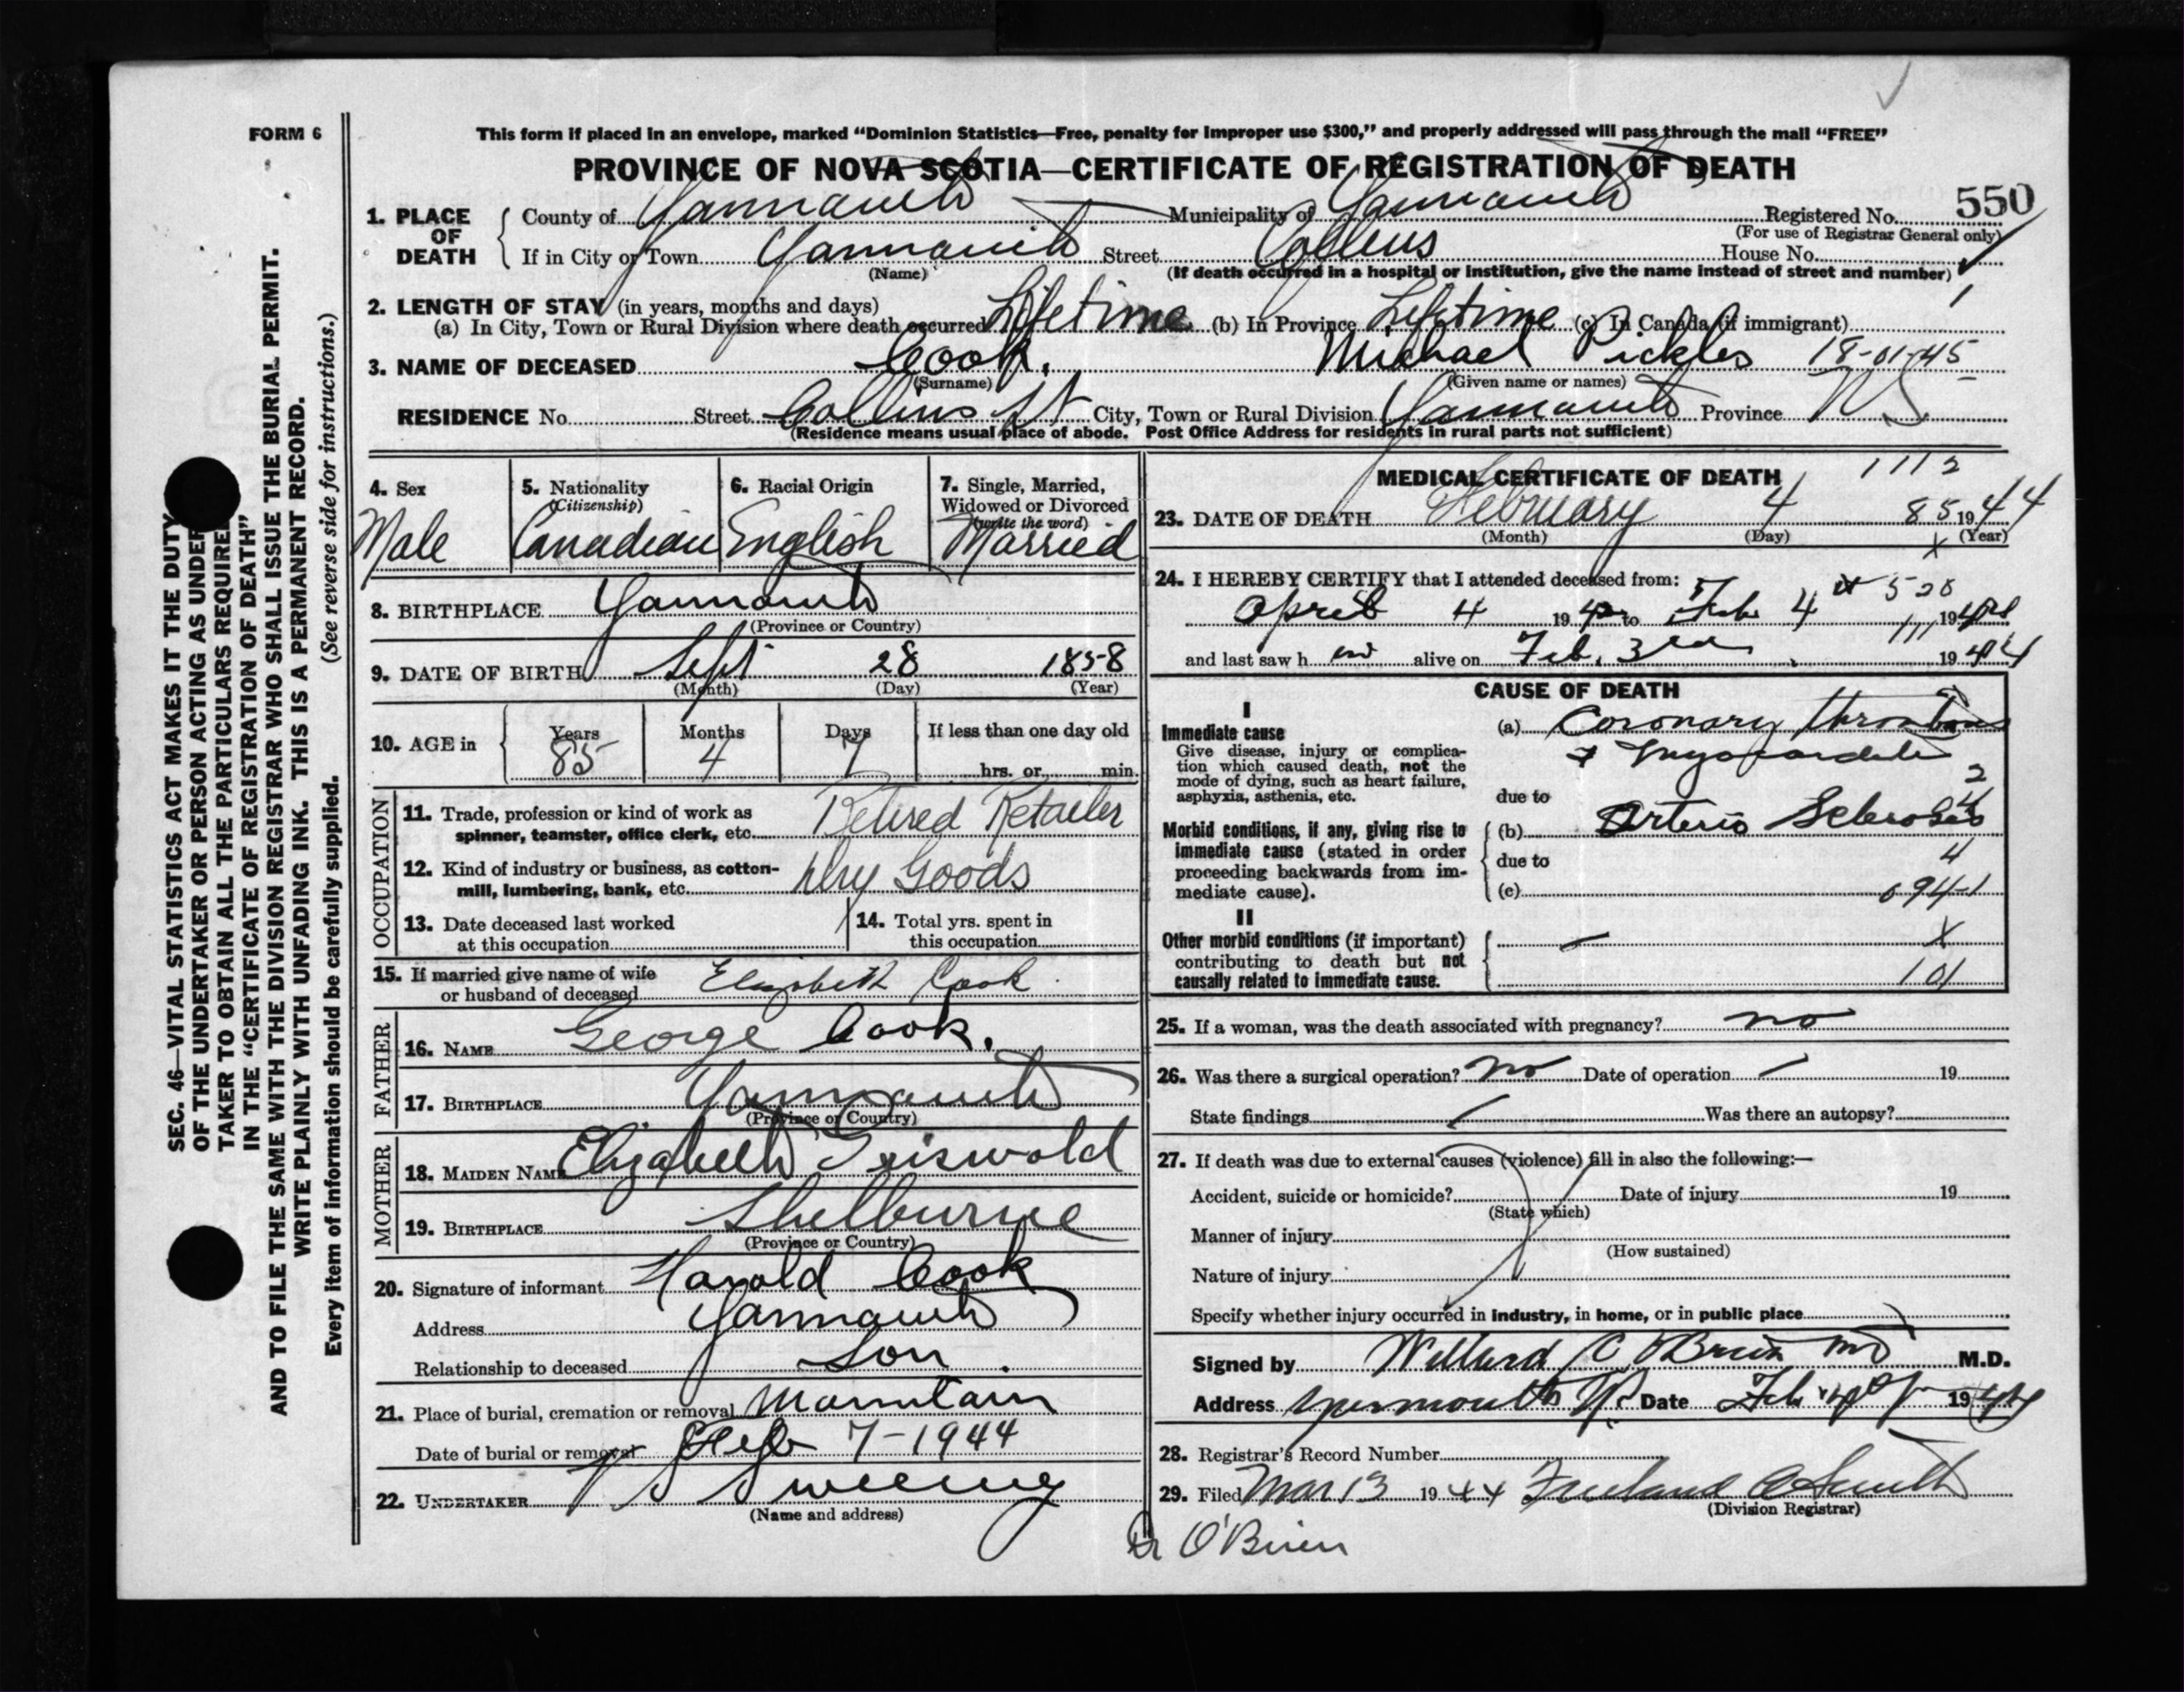 FORM 6
This form if placed in an envelope, marked “Dominion Statistics—Free, penalty for improper use $300,” and properly addressed will pass through the mail “FREE”
PROVINCE OF NOVA SCOTIA—CERTIFICATE OF REGISTRATION OF DEATH
550
1. PLACE OF DEATH
County of Yarmouth Municipality of Yarmouth Registered No.
(For use of Registrar General only)
If in City or Town Yarmouth Street Collins House No.
(Name) (If death occurred in a hospital or institution, give the name instead of street and number)
2. LENGTH OF STAY (in years, months and days)
(a) In City, Town or Rural Division where death occurred Lifetime (b) In Province Lifetime (c) In Canada (if immigrant)
3. NAME OF DECEASED Cook, Michael Pickles 18-01-45
(Surname) (Given name or names)
RESIDENCE No. Street Collins St City, Town or Rural Division Yarmouth Province N S
(Residence means usual place of abode. Post Office Address for residents in rural parts not sufficient)
4. Sex
Male
5. Nationality
(Citizenship)
Canadian
6. Racial Origin
English
7. Single, Married,
Widowed or Divorced
(write the word)
Married
8. BIRTHPLACE Yarmouth
(Province or Country)
9. DATE OF BIRTH Sept 28 1858
(Month) (Day) (Year)
10. AGE in
Years Months Days If less than one day old
85 4 7 hrs. or min.
OCCUPATION
11. Trade, profession or kind of work as
spinner, teamster, office clerk, etc. Retired Retailer
12. Kind of industry or business, as cotton-
mill, lumbering, bank, etc. Dry Goods
13. Date deceased last worked
at this occupation
14. Total yrs. spent in
this occupation
15. If married give name of wife
or husband of deceased Elizabeth Cook
FATHER
16. NAME George Cook.
17. BIRTHPLACE Yarmouth
(Province or Country)
MOTHER
18. MAIDEN NAME Elizabeth Griswold
19. BIRTHPLACE Shelburne
(Province or Country)
20. Signature of informant Harold Cook
Address Yarmouth
Relationship to deceased Son.
21. Place of burial, cremation or removal Mountain
Date of burial or removal Feb 7-1944
22. UNDERTAKER V S Sweeny
(Name and address)
MEDICAL CERTIFICATE OF DEATH 1112
23. DATE OF DEATH February 4 85 1944
(Month) (Day) (Year)
X
24. I HEREBY CERTIFY that I attended deceased from:
528
April 4 1942 to Feb 4 1944
111
and last saw h im alive on Feb. 3rd 1944
CAUSE OF DEATH
I
Immediate cause
Give disease, injury or complica-
tion which caused death, not the
mode of dying, such as heart failure,
asphyxia, asthenia, etc.
(a) Coronary thrombosis
& Myocarditis
2
due to
Morbid conditions, if any, giving rise to
immediate cause (stated in order
proceeding backwards from im-
mediate cause).
(b) Arterio Sclerosis
due to
4
(c) 094-1
II
Other morbid conditions (if important)
contributing to death but not
causally related to immediate cause.
—
X
101
25. If a woman, was the death associated with pregnancy? no
26. Was there a surgical operation? No Date of operation — 19
State findings Was there an autopsy?
27. If death was due to external causes (violence) fill in also the following:—
Accident, suicide or homicide? Date of injury 19
(State which)
Manner of injury
(How sustained)
Nature of injury
Specify whether injury occurred in industry, in home, or in public place
Signed by Willard C O'Brien MD M.D.
Address Yarmouth N.S. Date Feb 4th 1944
28. Registrar's Record Number
29. Filed Mar 13 1944 Freeland A Smith
(Division Registrar)
Dr O'Brien
SEC. 46—VITAL STATISTICS ACT MAKES IT THE DUTY
OF THE UNDERTAKER OR PERSON ACTING AS UNDER
TAKER TO OBTAIN ALL THE PARTICULARS REQUIRE
IN THE “CERTIFICATE OF REGISTRATION OF DEATH”
AND TO FILE THE SAME WITH THE DIVISION REGISTRAR WHO SHALL ISSUE THE BURIAL PERMIT.
WRITE PLAINLY WITH UNFADING INK. THIS IS A PERMANENT RECORD.
Every item of information should be carefully supplied. (See reverse side for instructions.)